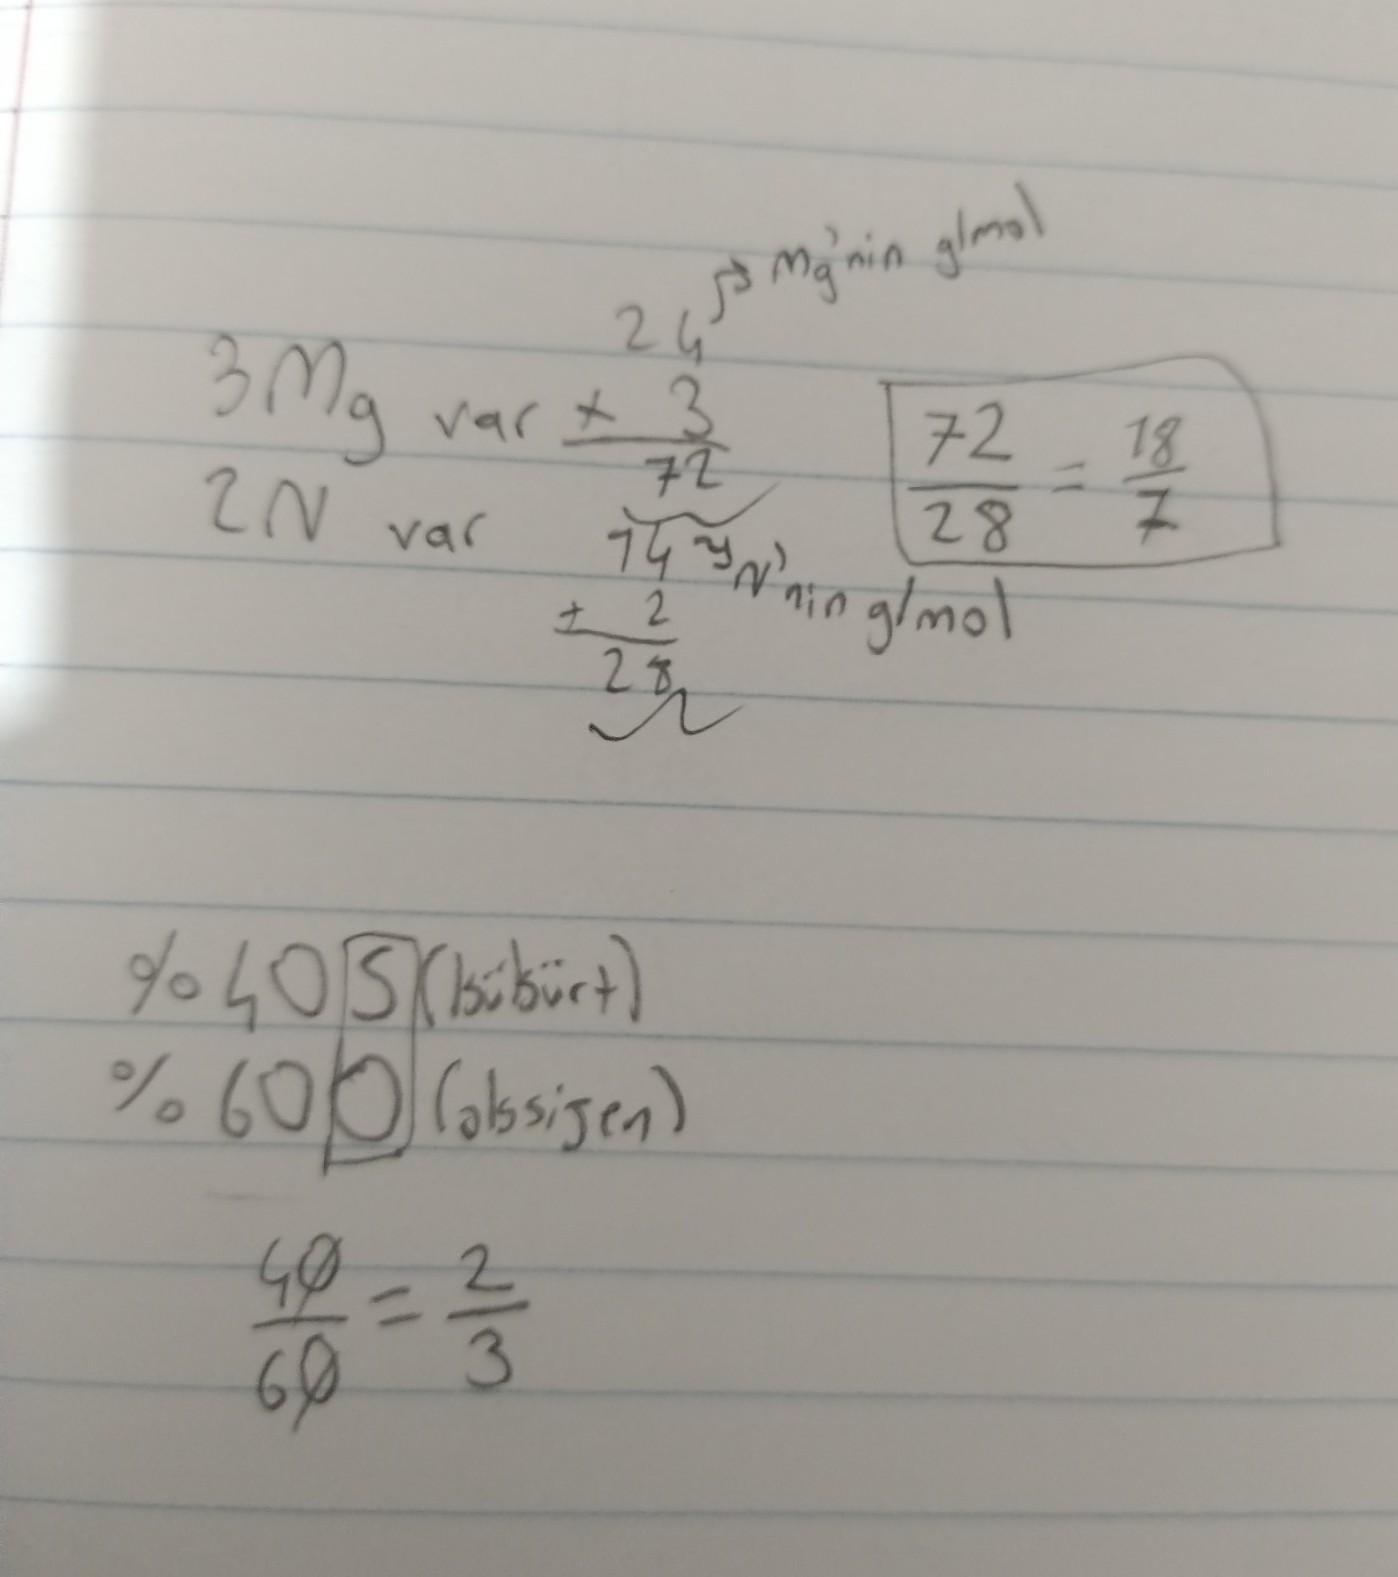 24 → Mg'nin g/mol
3Mg var x 3
72
72/28 = 18/7
2N var 14 → N'nin g/mol
x 2
28
%40 S (kükürt)
%60 O (oksijen)
40/60 = 2/3